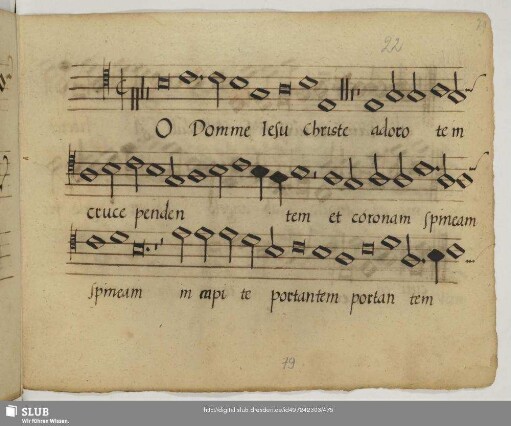 22
O Domine Iesu Christe adoro te in
cruce penden tem et coronam spineam
spineam in capi te portantem portan tem
79
SLUB
Wir führen Wissen.